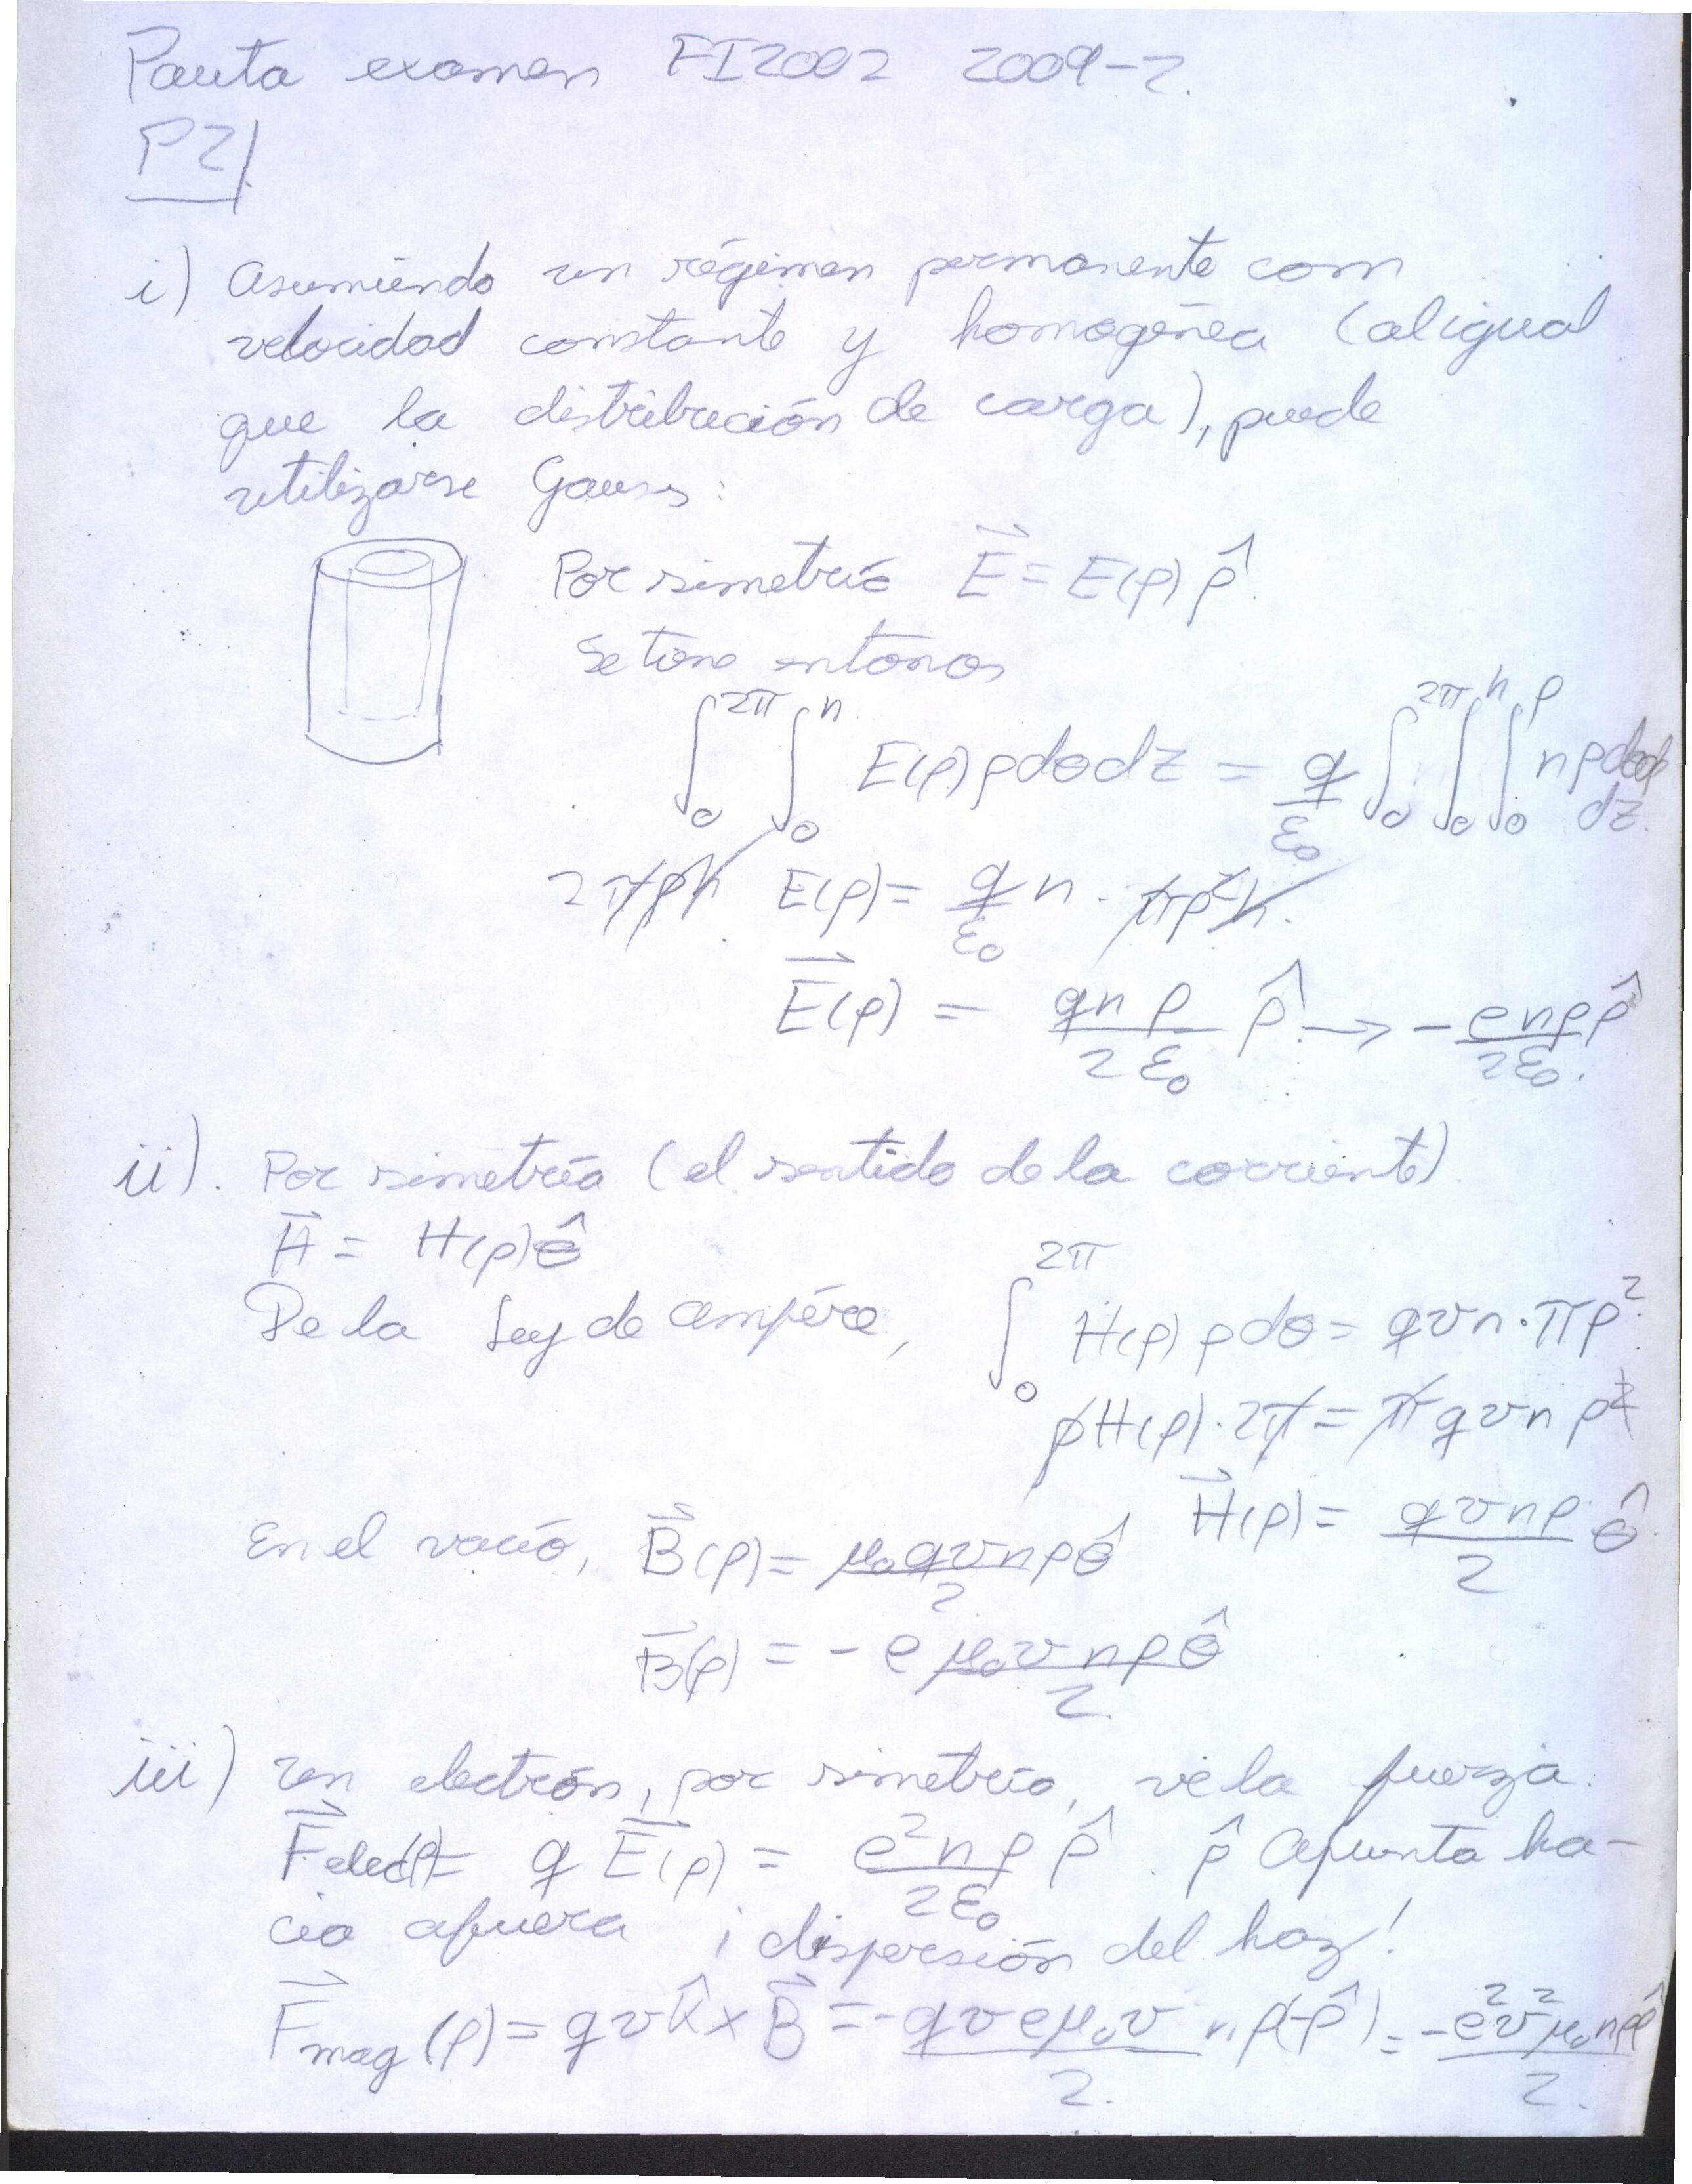 Pauta examen FI2002 2009-2.
P2/
i) Asumiendo un régimen permanente con
velocidad constante y homogénea (al igual
que la distribución de carga), puede
utilizarse Gauss:
Por simetría $\vec{E} = E(\rho)\hat{\rho}$.
Se tiene entonces
$\int_0^{2\pi}\int_0^h E(\rho)\rho d\theta dz = \frac{q}{\varepsilon_0}\int_0^{2\pi}\int_0^h\int_0^\rho n\rho d\theta d\rho dz$.
$2\pi\rho h E(\rho) = \frac{q}{\varepsilon_0} n \cdot \pi\rho^2 h.$
$\vec{E}(\rho) = \frac{qn\rho}{2\varepsilon_0}\hat{\rho} \rightarrow -\frac{en\rho}{2\varepsilon_0}\hat{\rho}.$
ii). Por simetría (el sentido de la corriente)
$\vec{H} = H(\rho)\hat{\theta}$
De la Ley de ampére, $\int_0^{2\pi} H(\rho)\rho d\theta = qvn \cdot \pi\rho^2.$
$\rho H(\rho) \cdot 2\pi = \pi qvn\rho^2$
$\vec{H}(\rho) = \frac{qvn\rho}{2}\hat{\theta}.$
En el vacío, $\vec{B}(\rho) = \frac{\mu_0 qvn\rho\hat{\theta}}{2}$
$\vec{B}(\rho) = -\frac{e\mu_0 vn\rho\hat{\theta}}{2}.$
iii) un electrón, por simetría, ve la fuerza.
$\vec{F}_{elec}(\rho) = q\vec{E}(\rho) = \frac{e^2 n\rho}{2\varepsilon_0}\hat{\rho}$. $\hat{\rho}$ apunta ha-
cia afuera ¡dispersión del haz!
$\vec{F}_{mag}(\rho) = qv\hat{k}\times\vec{B} = -\frac{qve\mu_0 v}{2.}n\rho(-\hat{\rho}) = -\frac{e^2v^2\mu_0 n\rho\hat{\rho}}{2.}$